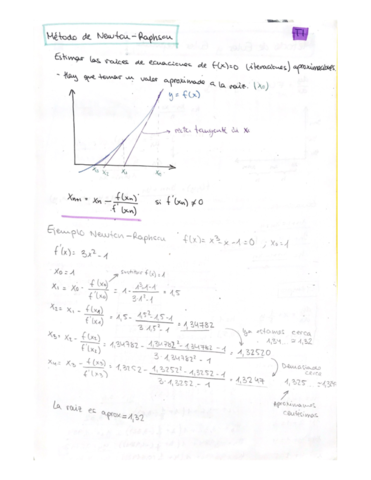 Método de Newton-Raphson
Estimar las raíces de ecuaciones de f(x)=0 (iteraciones) aproximaciones
- Hay que tomar un valor aproximado a la raíz. (x₀)
y = f(x)
recta tangente in x₀
xₙ₊₁ = xₙ - f(xₙ)/f'(xₙ) si f'(xₙ) ≠ 0
Ejemplo Newton-Raphson f(x) = x³ - x - 1 = 0, x₀ = 1
f'(x) = 3x² - 1
x₀ = 1
x₁ = x₀ - f(x₀)/f'(x₀) = 1 - 1³-1-1/3·1²-1 = 1,5
x₂ = x₁ - f(x₁)/f'(x₁) = 1,5 - 1,5³-1,5-1/3·1,5²-1 = 1,34782
ya estamos cerca
1,34 ... ≈ 1,32
x₃ = x₂ - f(x₂)/f'(x₂) = 1,34782 - 1,34782³-1,34782-1/3·1,34782²-1 = 1,32520
Demasiado cerca
x₄ = x₃ - f(x₃)/f'(x₃) = 1,3252 - 1,3252³-1,3252-1/3·1,3252-1 = 1,3247
1,325
Aproximamos
centésimas
La raíz es aprox = 1,32